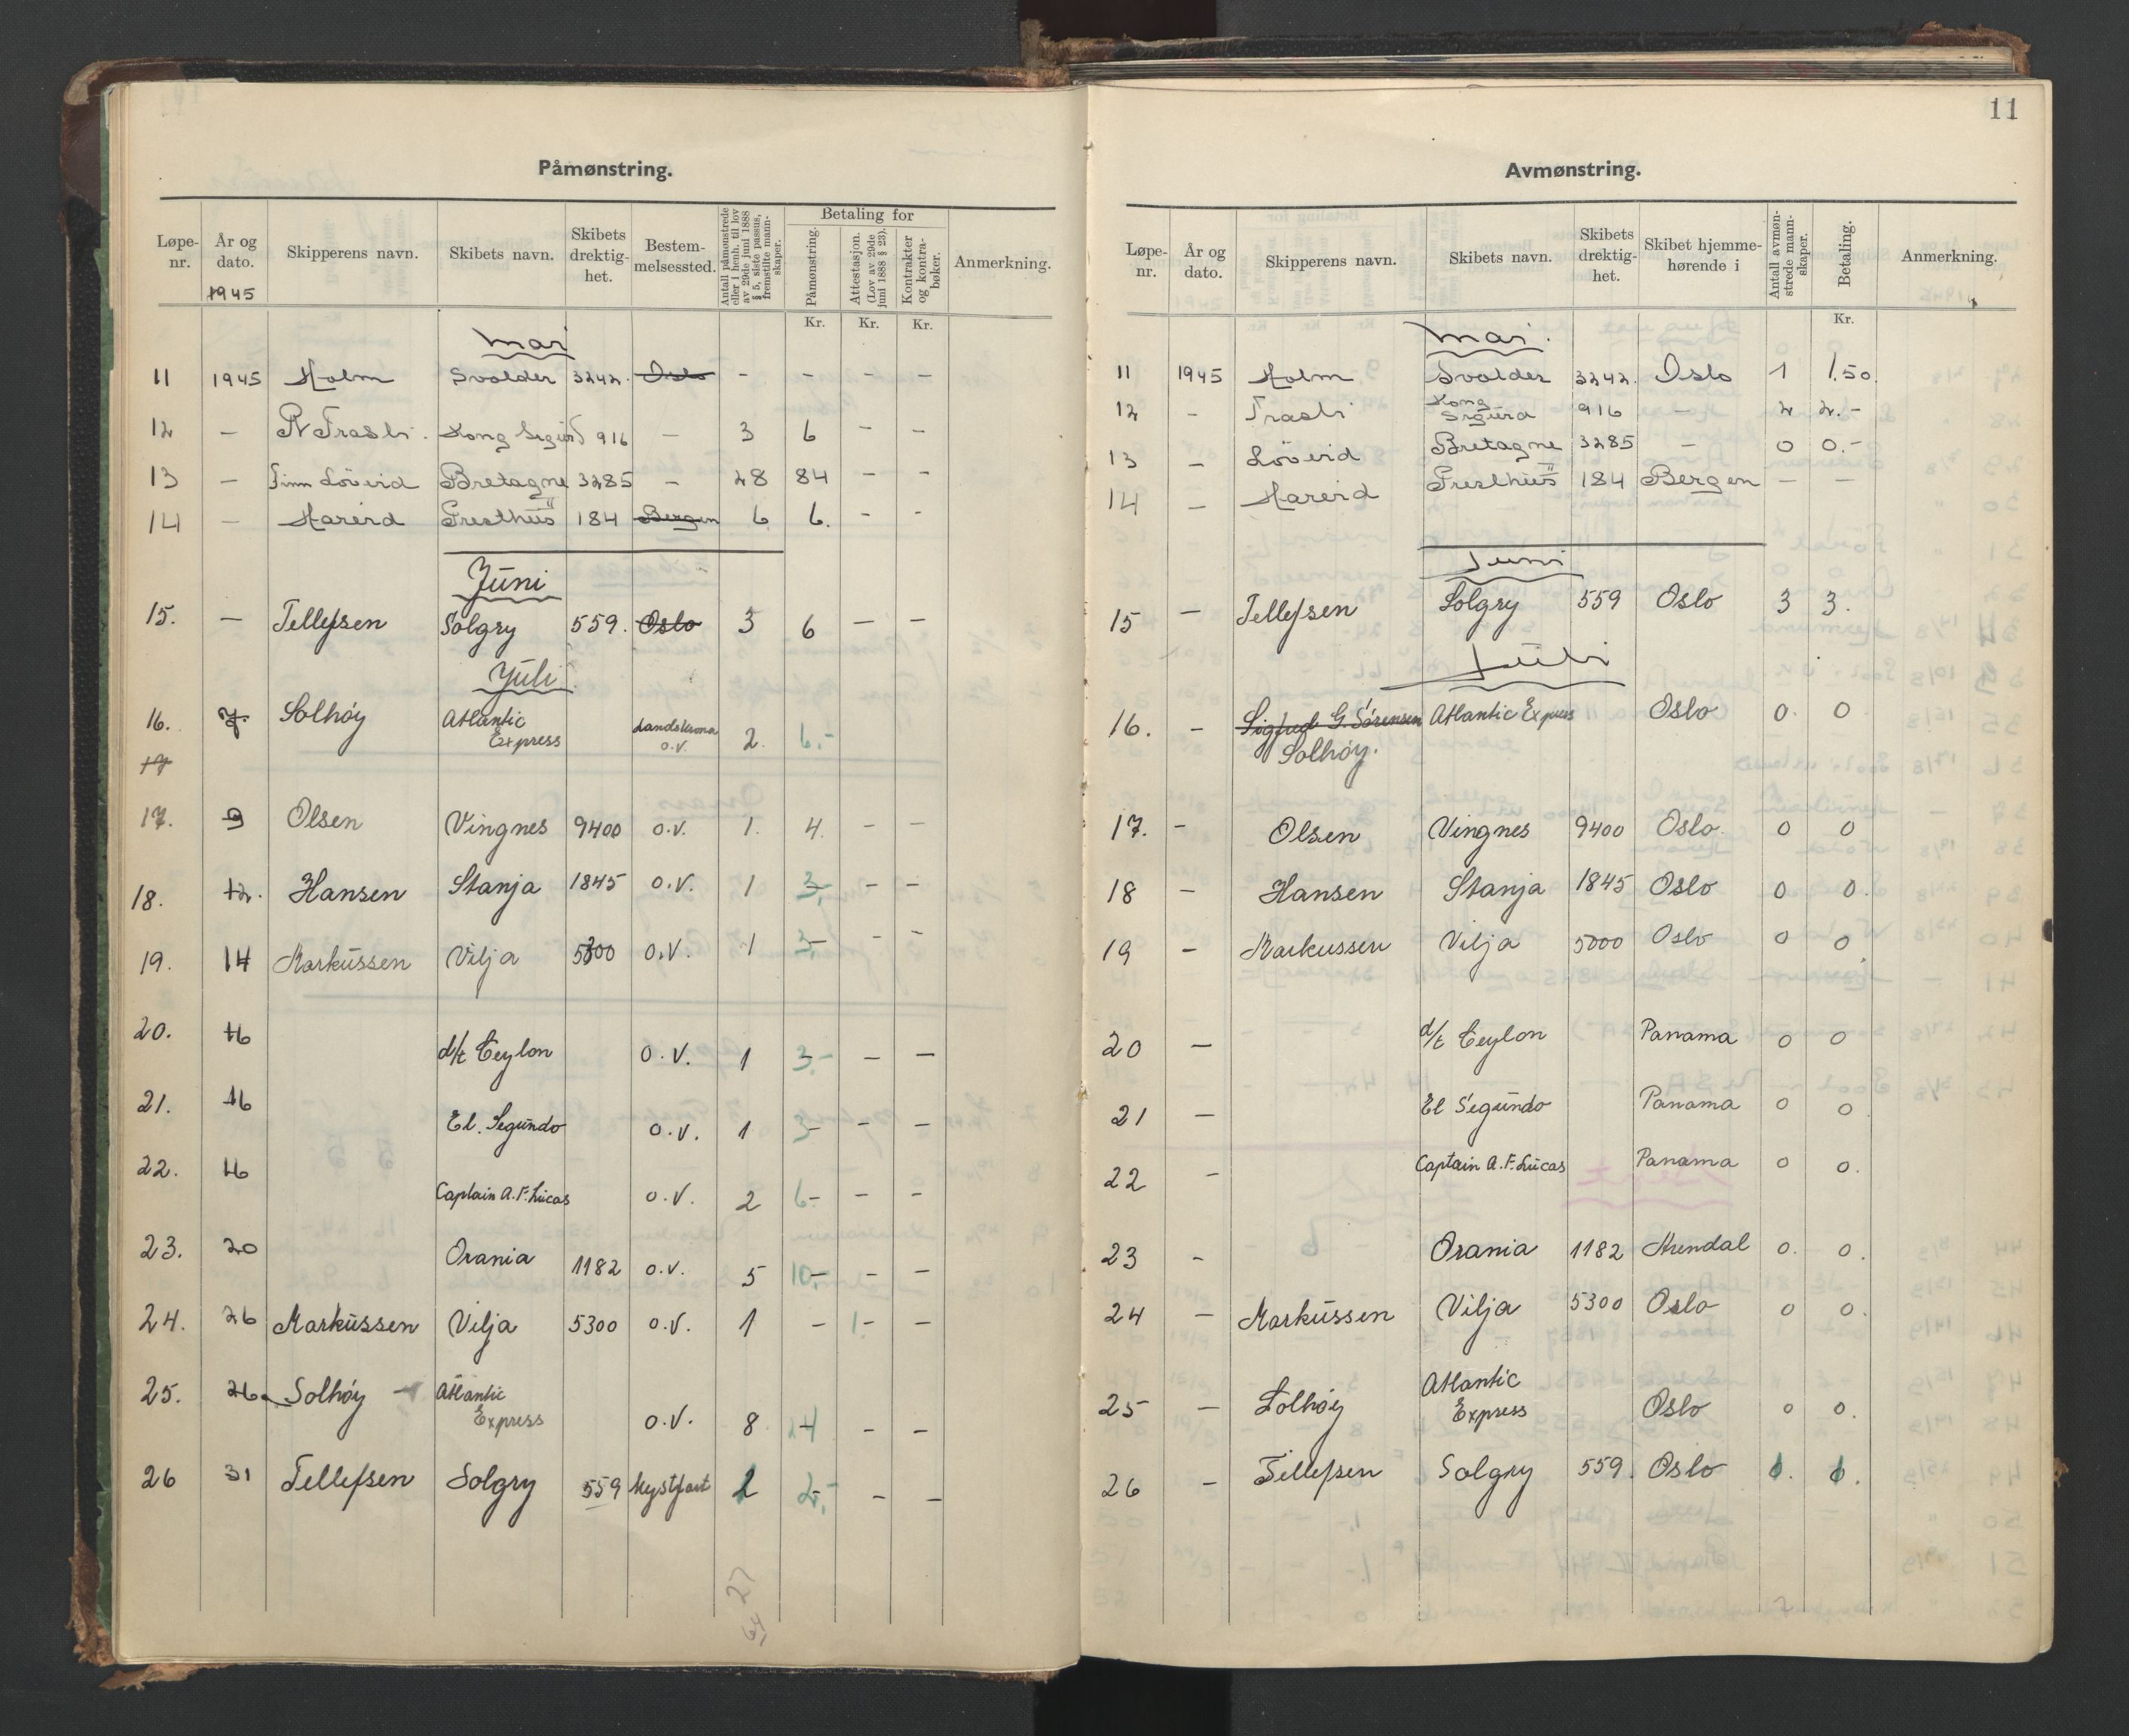 11
Påmønstring.
Løpe-nr. | År og dato. 1945 | Skipperens navn. | Skibets navn. | Skibets drektig-het. | Bestem-melsessted. | Antall påmønstrede eller i henh. til lov av 29de juni 1888 § 5, siste passus, fremstilte mann-skaper. | Betaling for | Påmønstring. | Attestasjon. (Lov av 29de juni 1888 § 23). | Kontrakter og kontra-bøker. | Anmerkning.
Kr. Kr. Kr.
Mai
11 1945 Holm Svolder 3242. Oslo - - - -
12 - Kong Sigurd 916 - 3 6 - -
13 - Finn Löverid Bretagne 3285 - 28 84 - -
14 - Hareid Presthus 184 Bergen 6 6. - -
Juni
15. - Tellefsen Solgry 559. Oslo 3 6 - -
Juli
16. 7. Solhøy Atlantic Express Landskrona o.v. 2. 6.-
17
17. 9 Olsen Vingnes 9400 o.v. 1. 4. - -
18. 12. Hansen Stanja 1845 o.v. 1 3.- - -
19. 14 Markussen Vilja 5300 o.v. 1 3.- - -
20. 16 d/t Ceylon o.v. 1 3.- - -
21. 16 El. Segundo o.v. 1 3- - -
22. 16 Captain A.F. Lucas o.v. 2 6.- - -
23. 20 Orania 1182 o.v. 5 10.- - -
24. 26 Markussen Vilja 5300 o.v. 1 - 1.- -
25. 26. Solhøy - Atlantic Express o.v. 8 24 - -
26 31 Tellefsen Solgry 559 Kystfart 2 2.- - -
27
64
Avmønstring.
Løpe-nr. | År og dato. | Skipperens navn. | Skibets navn. | Skibets drektig-het. | Skibet hjemme-hørende i | Antall avmøn-strede mann-skaper. | Betaling. | Anmerkning.
Kr.
Mai.
11 1945 Holm Svolder 3242. Oslo 1 1.50.
12 - Kong Sigurd 916 - 2 2.-
13 - Löverid Bretagne 3285 - 0 0.-
14 - Hareid Presthus 184 Bergen - -
Juni
15 - Tellefsen Solgry 559 Oslo 3 3.
Juli
16. - Sigfred G. Sørensen Atlantic Express Oslo 0. 0
Solhøy.
17. - Olsen Vingnes 9400 Oslo. 0 0
18 - Hansen Stanja 1845 Oslo 0 0.
19 - Markussen Vilja 5000 Oslo 0 0.
20 - d/t Ceylon Panama 0 0
21 - El Segundo Panama 0 0
22 - Captain A.F. Lucas Panama 0 0.
23 - Orania 1182 Arendal 0. 0.
24 - Markussen Vilja 5300 Oslo 0 0.
25 - Solhøy Atlantic Express Oslo 0 0.
26 - Tellefsen Solgry 559. Oslo
7